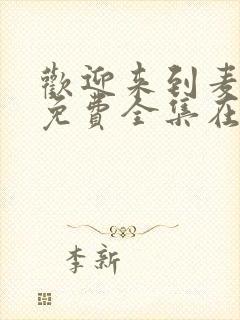 歡迎来到麦
免費全集在
李新